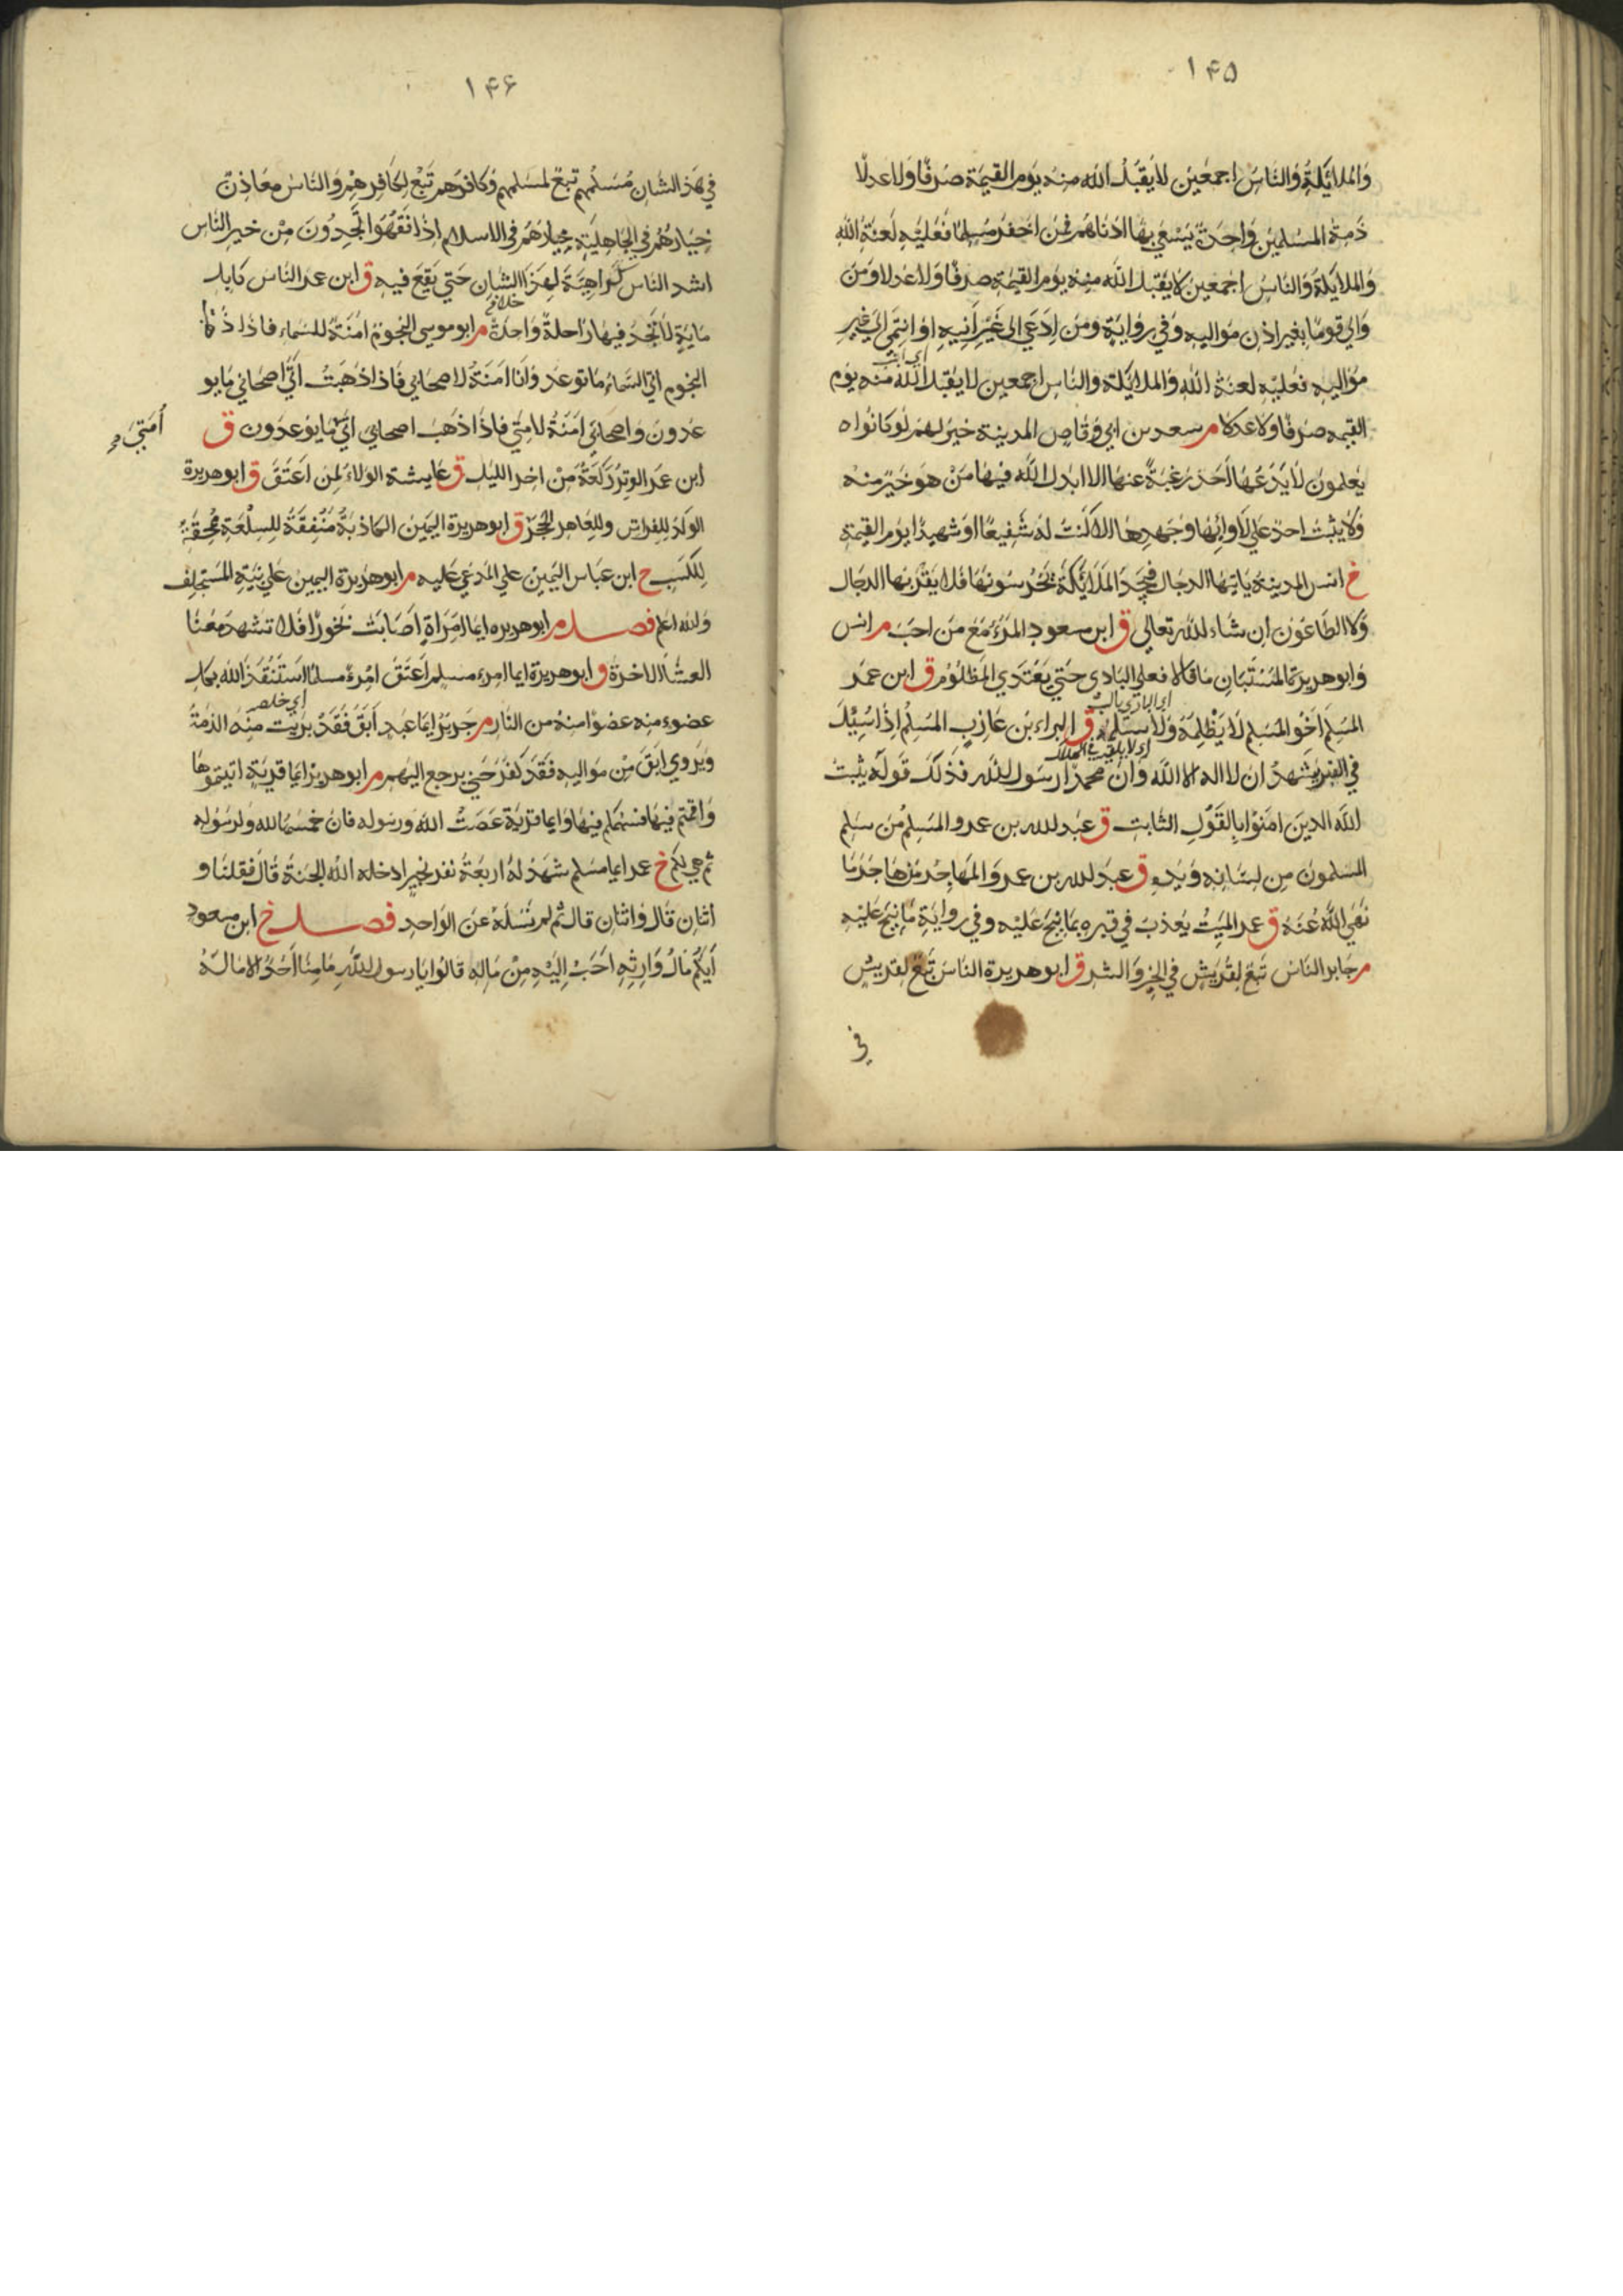 ۱۴۵
وَالمَلائِكَةِ وَالنَّاسِ اجمعين لا يَقبَلُ الله منه يوم القيمة صَرفًا وَلا عدلًا
ذمة المسلمين واحدة يَسْعَي بها ادناهم فمن اخفر مُسلِمًا فَعَلَيْهِ لَعنَةُ الله
وَالملائكة وَالنّاس اجمعين لا يقبل الله منه يوم القيمة صرفًا وَلا عدلا ومَن
وَالي قومًا بغير اذن مواليه وَفي رواية ومَن ادّعي الى غَيْرِ اَبِيهِ اوِ انتَمَى الى غير
مَوَاليه فعَلَيْه لعنة الله وَالملائكة والنّاس اجمعين لا يقبل الله منه يوم
القيمه صَرفًا وَلا عدلا م سعد بن ابي وقاص المدينة خيرٌ لهم لو كانوا ه
يَعلمون لا يَدَعُها اَحَدٌ رَغبَةً عنها الا ابدل الله فيها مَنْ هو خَيْرٌ منه
وَلا يثبت احدٌ علي لَاوائِهَا وجَهدِهَا الا كُنتُ له شَفِيعًا او شهيدًا يوم القيمة
خ انس المدينة ياتيها الدجال فيَجِدُ المَلَائكَةَ يَحْرُسُونَهَا فَلا يَقْرَبها الدجال
وَلا الطّاعون ان شاء الله تعالي ق ابن مسعود المَرْءُ مَعَ مَن احبّ م انس
وَابو هريرة المُسْتَبَّانِ ما قالا فعلي البادي حَتّي يَعْتَدِي المَظلُوم ق ابن عمر
اي البادي
المُسلِم اَخُو المُسلِم لا يَظْلِمُهُ وَلا يسلمه ق البراء بن عازب المسلِمُ اِذَا سُئِلَ
في القبر يشهدُ ان لا اله الا الله وَانّ محمدًا رسول الله فذلك قوله يثبت
الله الذين امنوا بالقَوْلِ الثابت ق عبد الله بن عمرو المسلِمُ مَن سلم
المسلمون مِن لسَانِه وَيَدِه ق عبد الله بن عمرو المهَاجِرُ مَن هَاجَرَ ما
نهَي الله عَنهُ ق عمر الميّتُ يعذب في قبره بما نِيحَ عَلَيْه وفي رواية مَا نِيحَ عَلَيْه
م جَابر الناس تَبَعٌ لقُرَيش في الخير وَالشر ق ابو هريرة النّاس تَبَعٌ لقريش
في
۱۴۶
في هَذ الشّان مُسْلِمُهم تَبَعٌ لمسلمهم وَكافرُهم تَبَعٌ لكافِرِهِم وَالنّاس معَادِنُ
خِيَارُهُمْ في الجَاهِلِيّةِ خِيَارُهُمْ في الاسلام اِذَا فَقُهُوا تَجِدُونَ مِنْ خير النّاس
اشد الناس كَرَاهِيَةً لِهَذَا الشّان حَتّي يَقَعَ فيه ق ابن عمر النّاس كابل
مايَةٍ لا تَجِدُ فِيهَا رَاحِلَةً وَاحِدَةً م ابو موسى النجومُ اَمَنَةٌ للسّماء فاذا ذَهَبَ
النجوم اتي السّماء ما توعد وَانا اَمَنَةٌ لاصحابي فَاذا ذهَبتُ اَتَى اصحابي ما يو
عدون وَاصحابي اَمَنَةٌ لامتي فاذا ذهَبَ اصحابي اتي ما يوعدون ق
اُمَّتِي
ابن عمر الوِترُ رَكعَةٌ مِنْ اخر الليل ق عايشة الولاء لمن اَعْتَقَ ق ابو هريرة
الولَدُ للفراش وللعاهر الحَجَرُ ق ابو هريرة اليمين الكاذبة مُنْفِقَةٌ للسلْعَة مُمحِقَةٌ
لِلكَسْبِ خ ابن عَبّاس اليَمِينُ علي المدعي عليه م ابو هريرة اليمين علي نيّة المستحلِف
وَالله اعلم فصل م ابو هريره ايما امرَاةٍ اصَابت بَخُورًا فَلا تشهد مَعَنَا
العشَاَ الاخرة ق ابو هريرة ايما امرء مسلم اَعْتَقَ امْرءً مسلمًا استَنْقَذَ الله بكل
اي خلص
عضوء منه عضوًا منه من النّار م جرير ايمَا عَبدٍ اَبَقَ فَقَدْ بَرئَت مِنهُ الذمّةُ
وَيروي ابَقَ مِن مواليه فقد كفَرَ حَتي يرجع اليهم م ابو هريرة ايّما قريةٍ اتيتموهَا
وَاقمتم فيهَا فسَهمكم فيهَا وَايما قرية عَصَتْ الله وَرسوله فان خمسَها لله ولرسُوله
ثم هِيَ لكم خ عمر ايما مسلم شَهِدَ لهُ اربعة نفر بخيرٍ ادخله الله الجنة قَالَ فقلنا و
اثنان قالَ وَاثنَان قال ثُمّ لم نَسئَله عَن الوَاحدِ فصل خ ابن مسعود
اَيّكُم مَالُ وَارثِهِ اَحَبُّ اِلَيْهِ مِنْ مَالِهِ قالُوا يا رسول الله ما منّا اَحَدٌ الا مَالُهُ